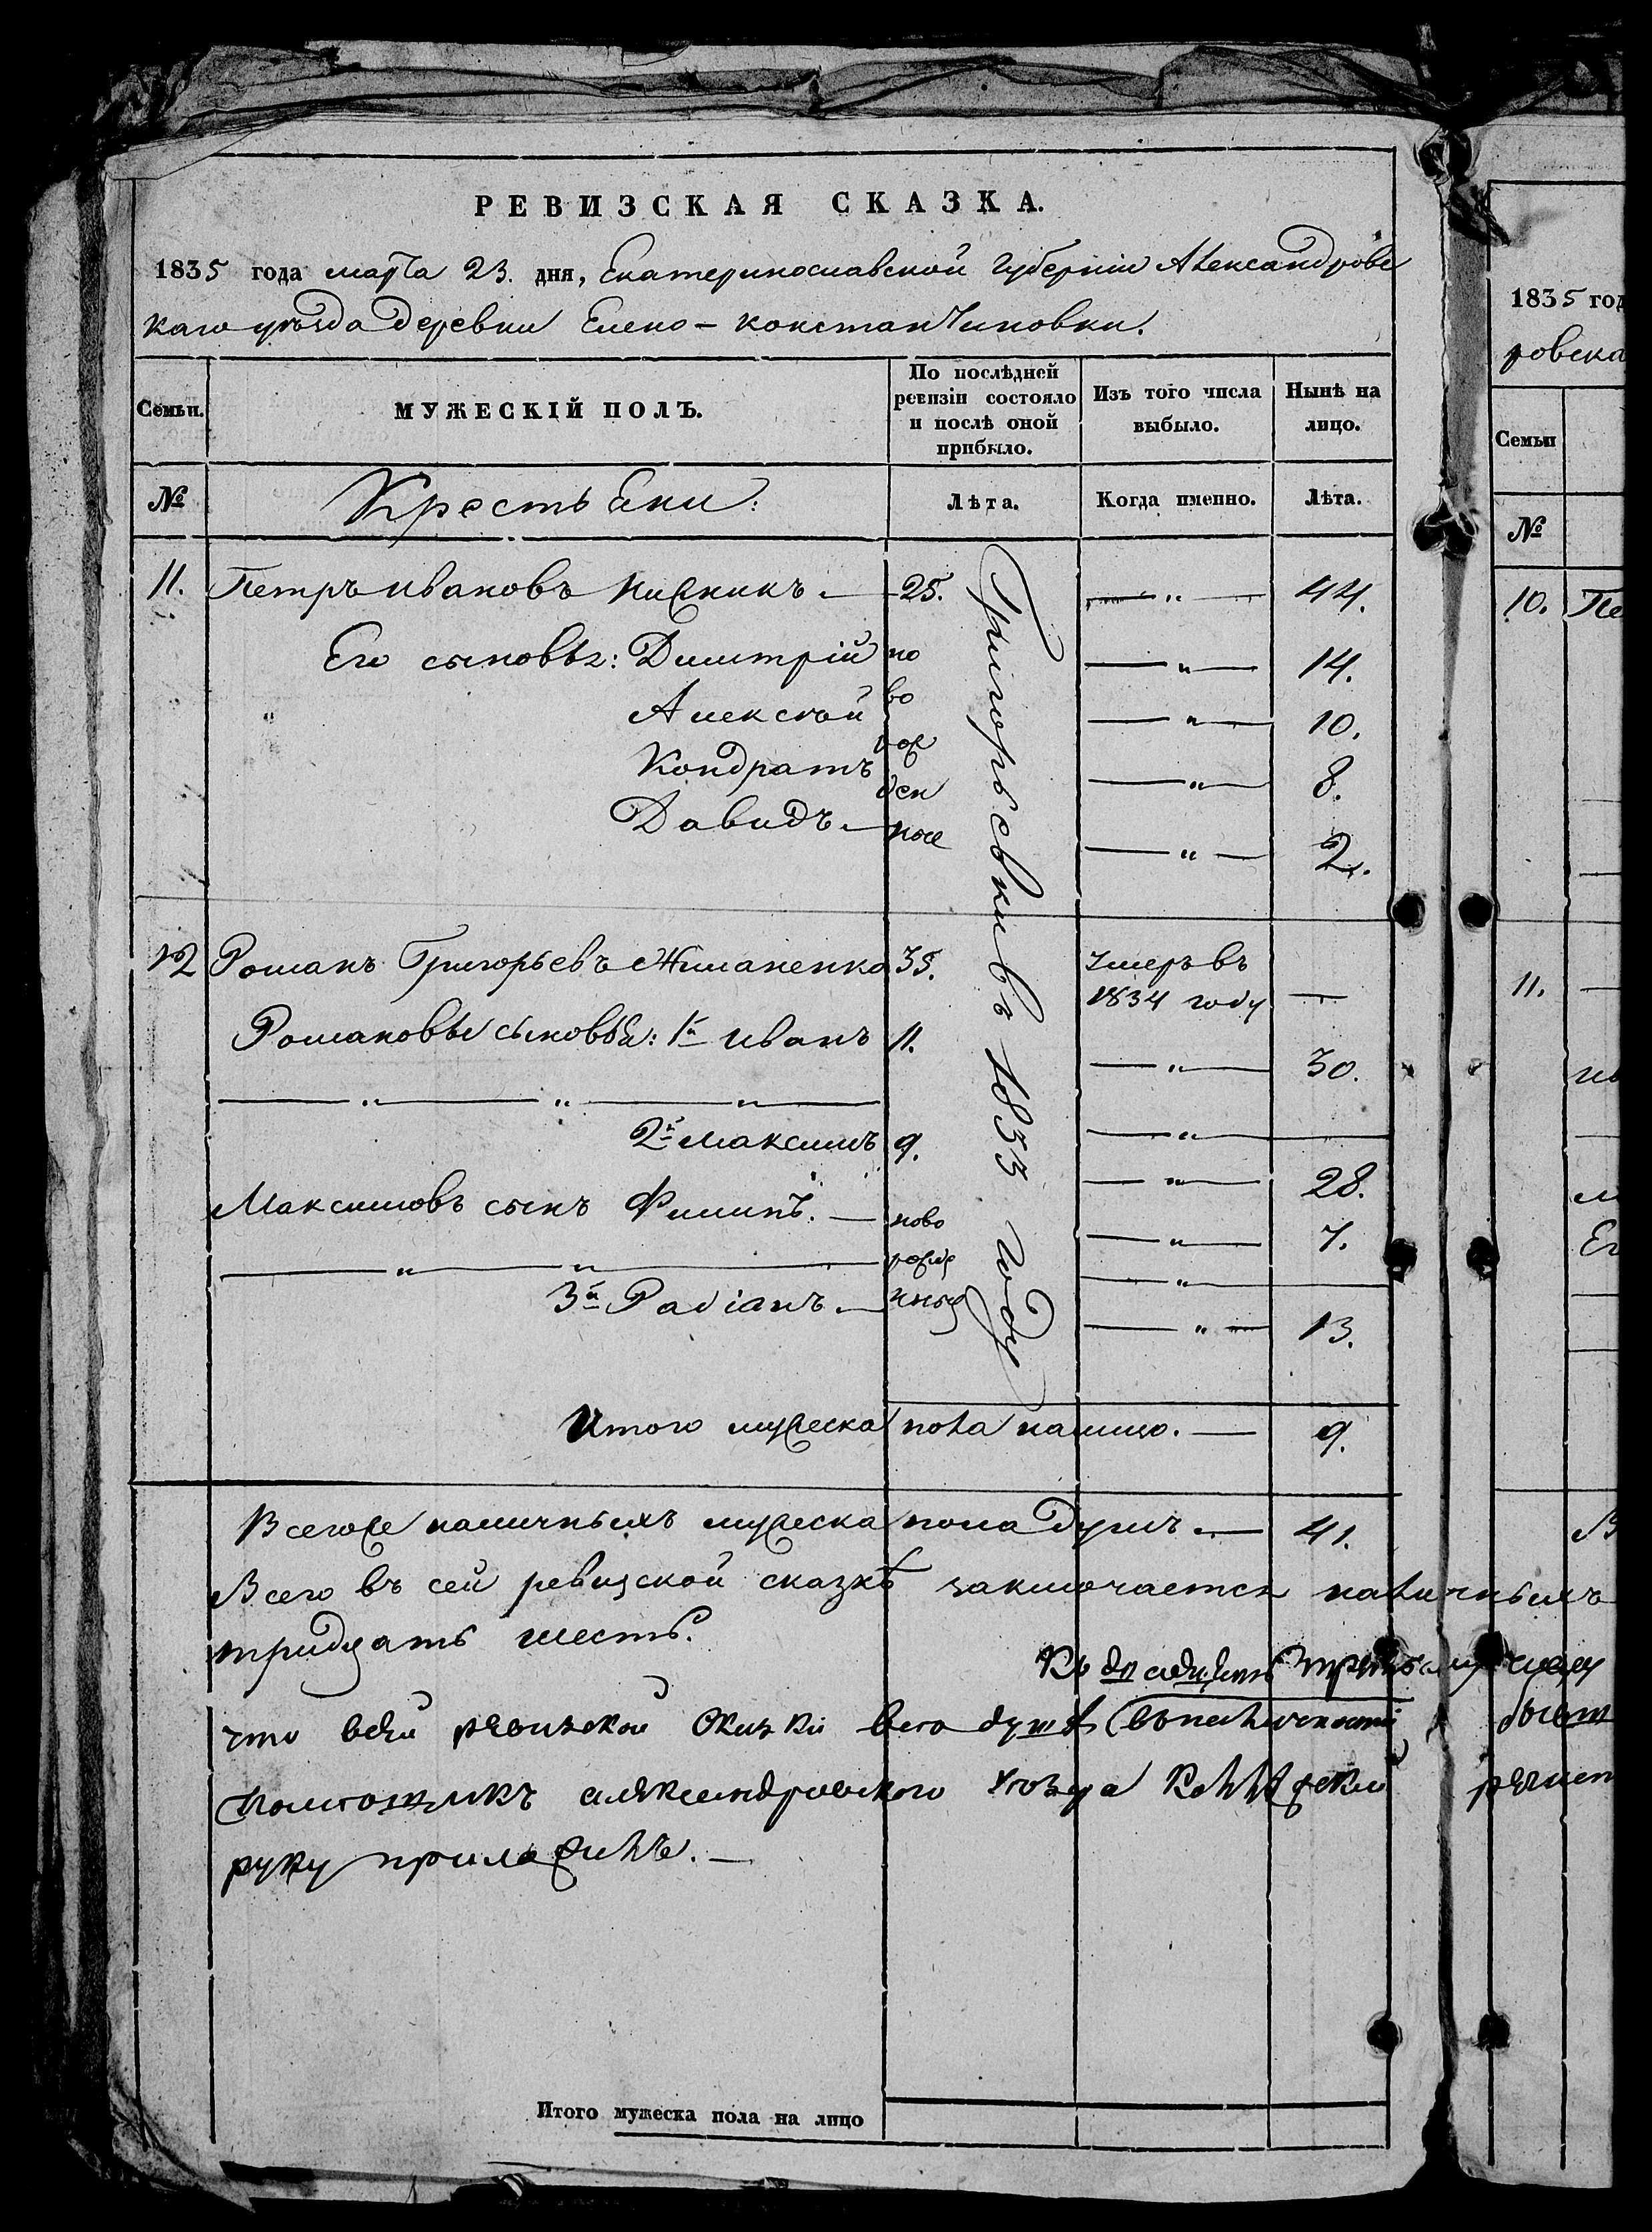 РЕВИЗСКАЯ СКАЗКА.
1835 года марта 23. дня, Екатеринославской Губерніи Александровс
каго уѣзда деревни Елено-Константиновки.
Семьи.
МУЖЕСКІЙ ПОЛЪ.
По послѣдней ревизіи состояло и послѣ оной прибыло.
Изъ того числа выбыло.
Нынѣ на лицо.
№
Крестьяни:
Лѣта.
Когда именно.
Лѣта.
11. Петръ Ивановъ 25. — " — 44.
Его сыновья: Димитрій но — " — 14.
Алексѣй во — " — 10.
Кондратъ рож — " — 8.
Давидъ — ден ные — " — 2.
Григорьевки въ 1833 году
12 Романъ Григорьевъ Жиманенко 35. Умеръ въ 1834 году —
Романовы сыновья: 1й Иванъ 11. — " — 30.
— " — " — " —
2й Максимъ 9. — " — 28.
Максимовъ сынъ Филипъ. — ново — " — 7.
— " — " — рожд — " —
3й Радіанъ — нные — " — 13.
Итого мужеска пола налицо. — 9.
Всегоже наличныхъ мужеска пола душъ. — 41.
Всего въ сей ревизской сказкѣ заключается наличныхъ
тридцать шесть.
что всей ревизской Сказки всего душъ въ наличности
Помещикъ александровского уѣзда
руку приложилъ. —
Итого мужеска пола на лицо
1835 год
ровска
Семьи
№
10. Пе
11. —
Ег
В